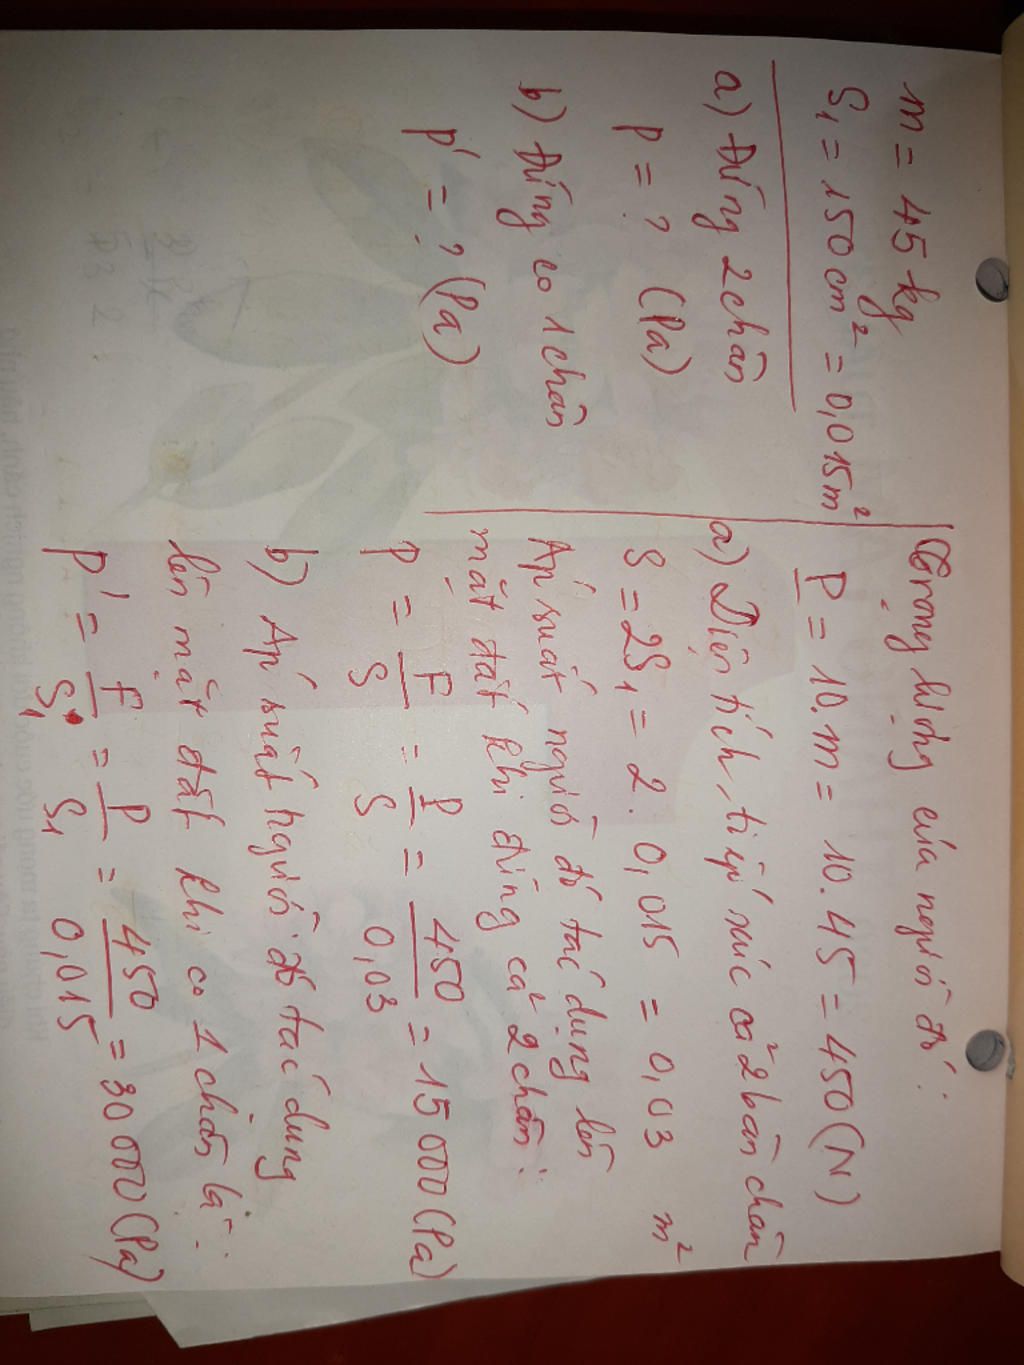 m = 45 kg
S₁ = 150 cm² = 0,015 m²
a) Đứng 2 chân
p = ? (Pa)
b) Đứng co 1 chân
p' = ? (Pa)
Trọng lượng của người đó:
P = 10.m = 10.45 = 450 (N)
a) Diện tích tiếp xúc cả 2 bàn chân
S = 2S₁ = 2. 0,015 = 0,03 m²
Áp suất người đó tác dụng lên
mặt đất khi đứng cả 2 chân:
p = F/S = P/S = 450/0,03 = 15 000 (Pa)
b) Áp suất người đó tác dụng
lên mặt đất khi co 1 chân là:
p' = F/S₁ = P/S₁ = 450/0,015 = 30 000 (Pa)